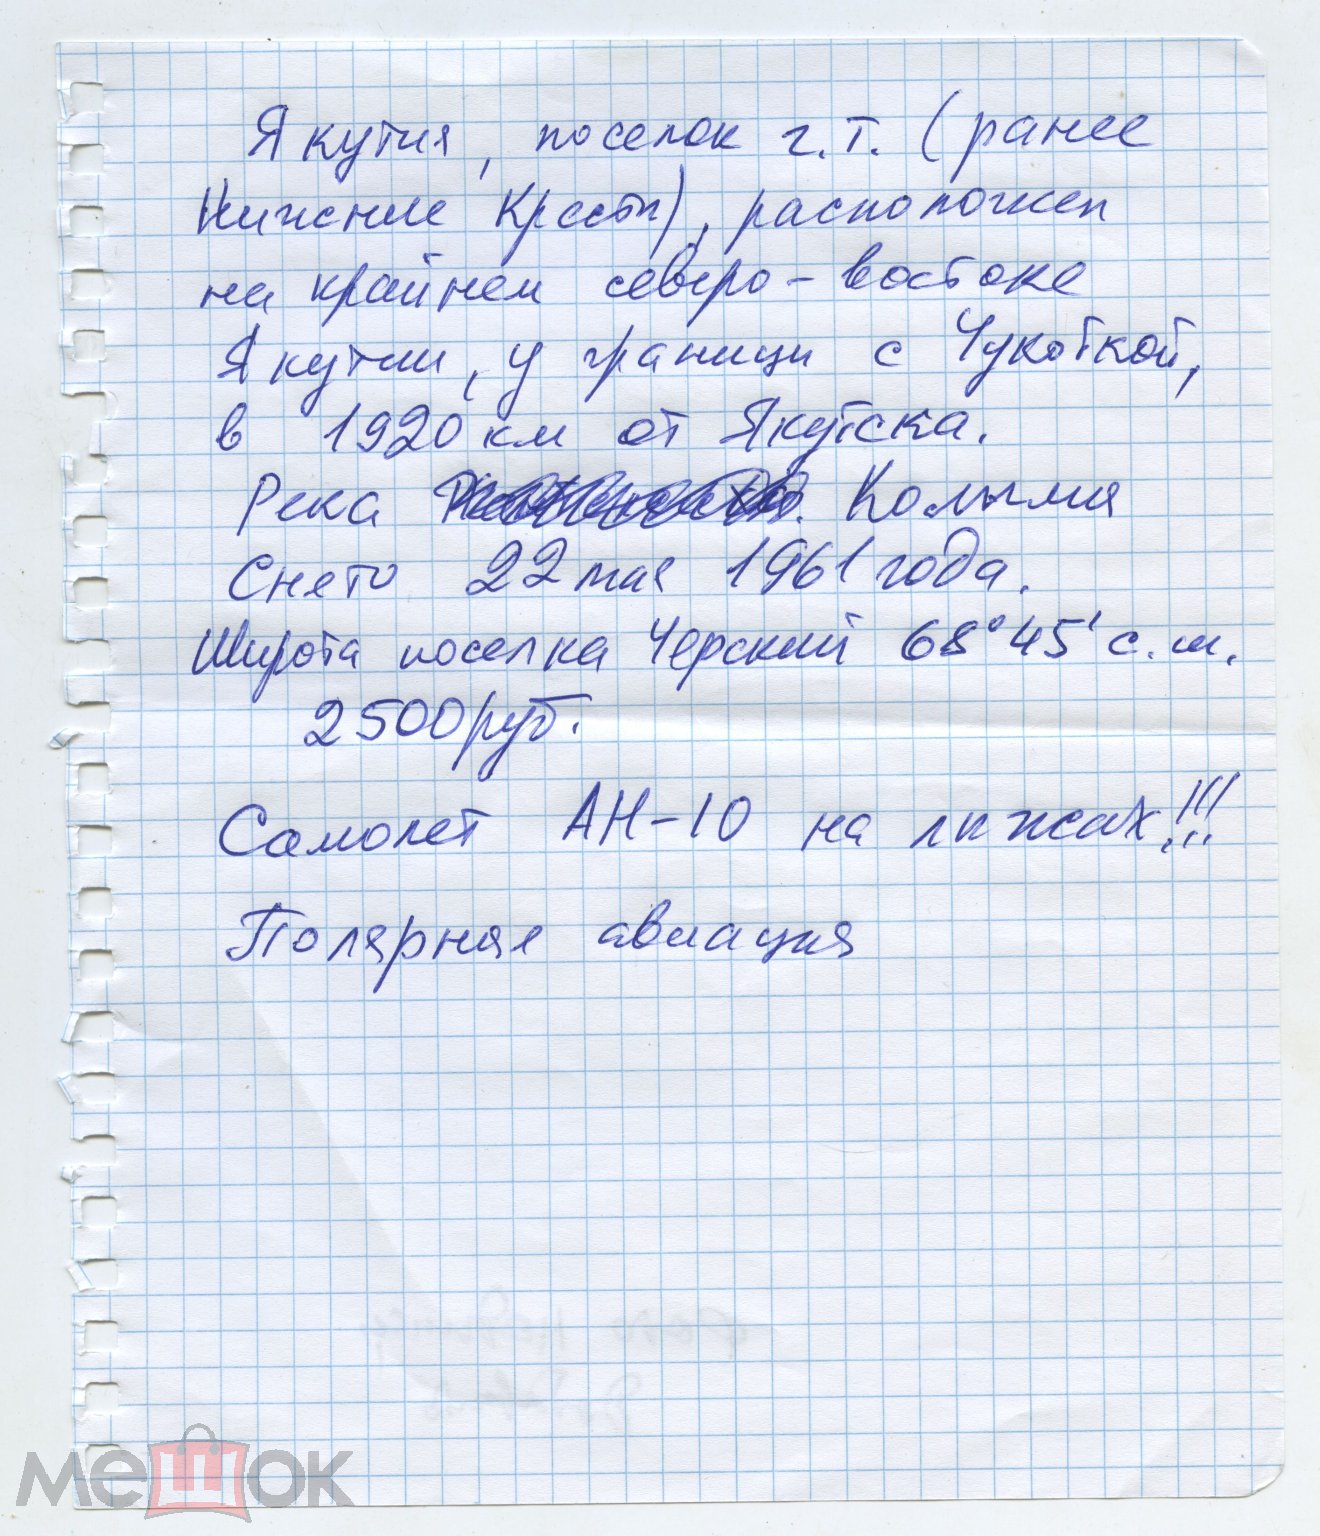 Якутия, поселок г.т. (ранее
Нижние Кресты), расположен
на крайнем северо-востоке
Якутии, у границы с Чукоткой,
в 1920 км от Якутска.
Река Колыма
Снято 22 мая 1961 года.
Широта поселка Черский 68°45' с.ш.
2500 руб.
Самолет АН-10 на лыжах!!!
Полярная авиация
мешок